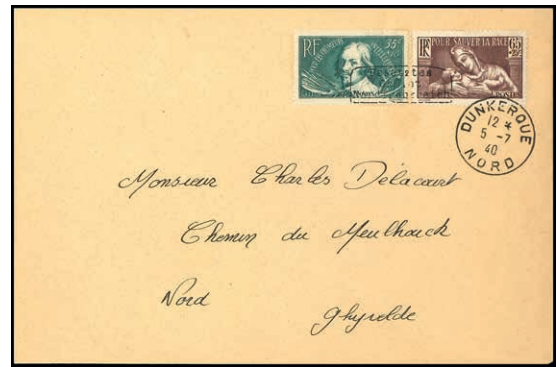 RF 35c
POUR SAUVER LA RACE
POSTE
Besetztes
DUNKERQUE
12 *
5 -7
40
NORD
Monsieur Charles Délacourt
Chemin du Meulhouck
Nord
Ghyvelde